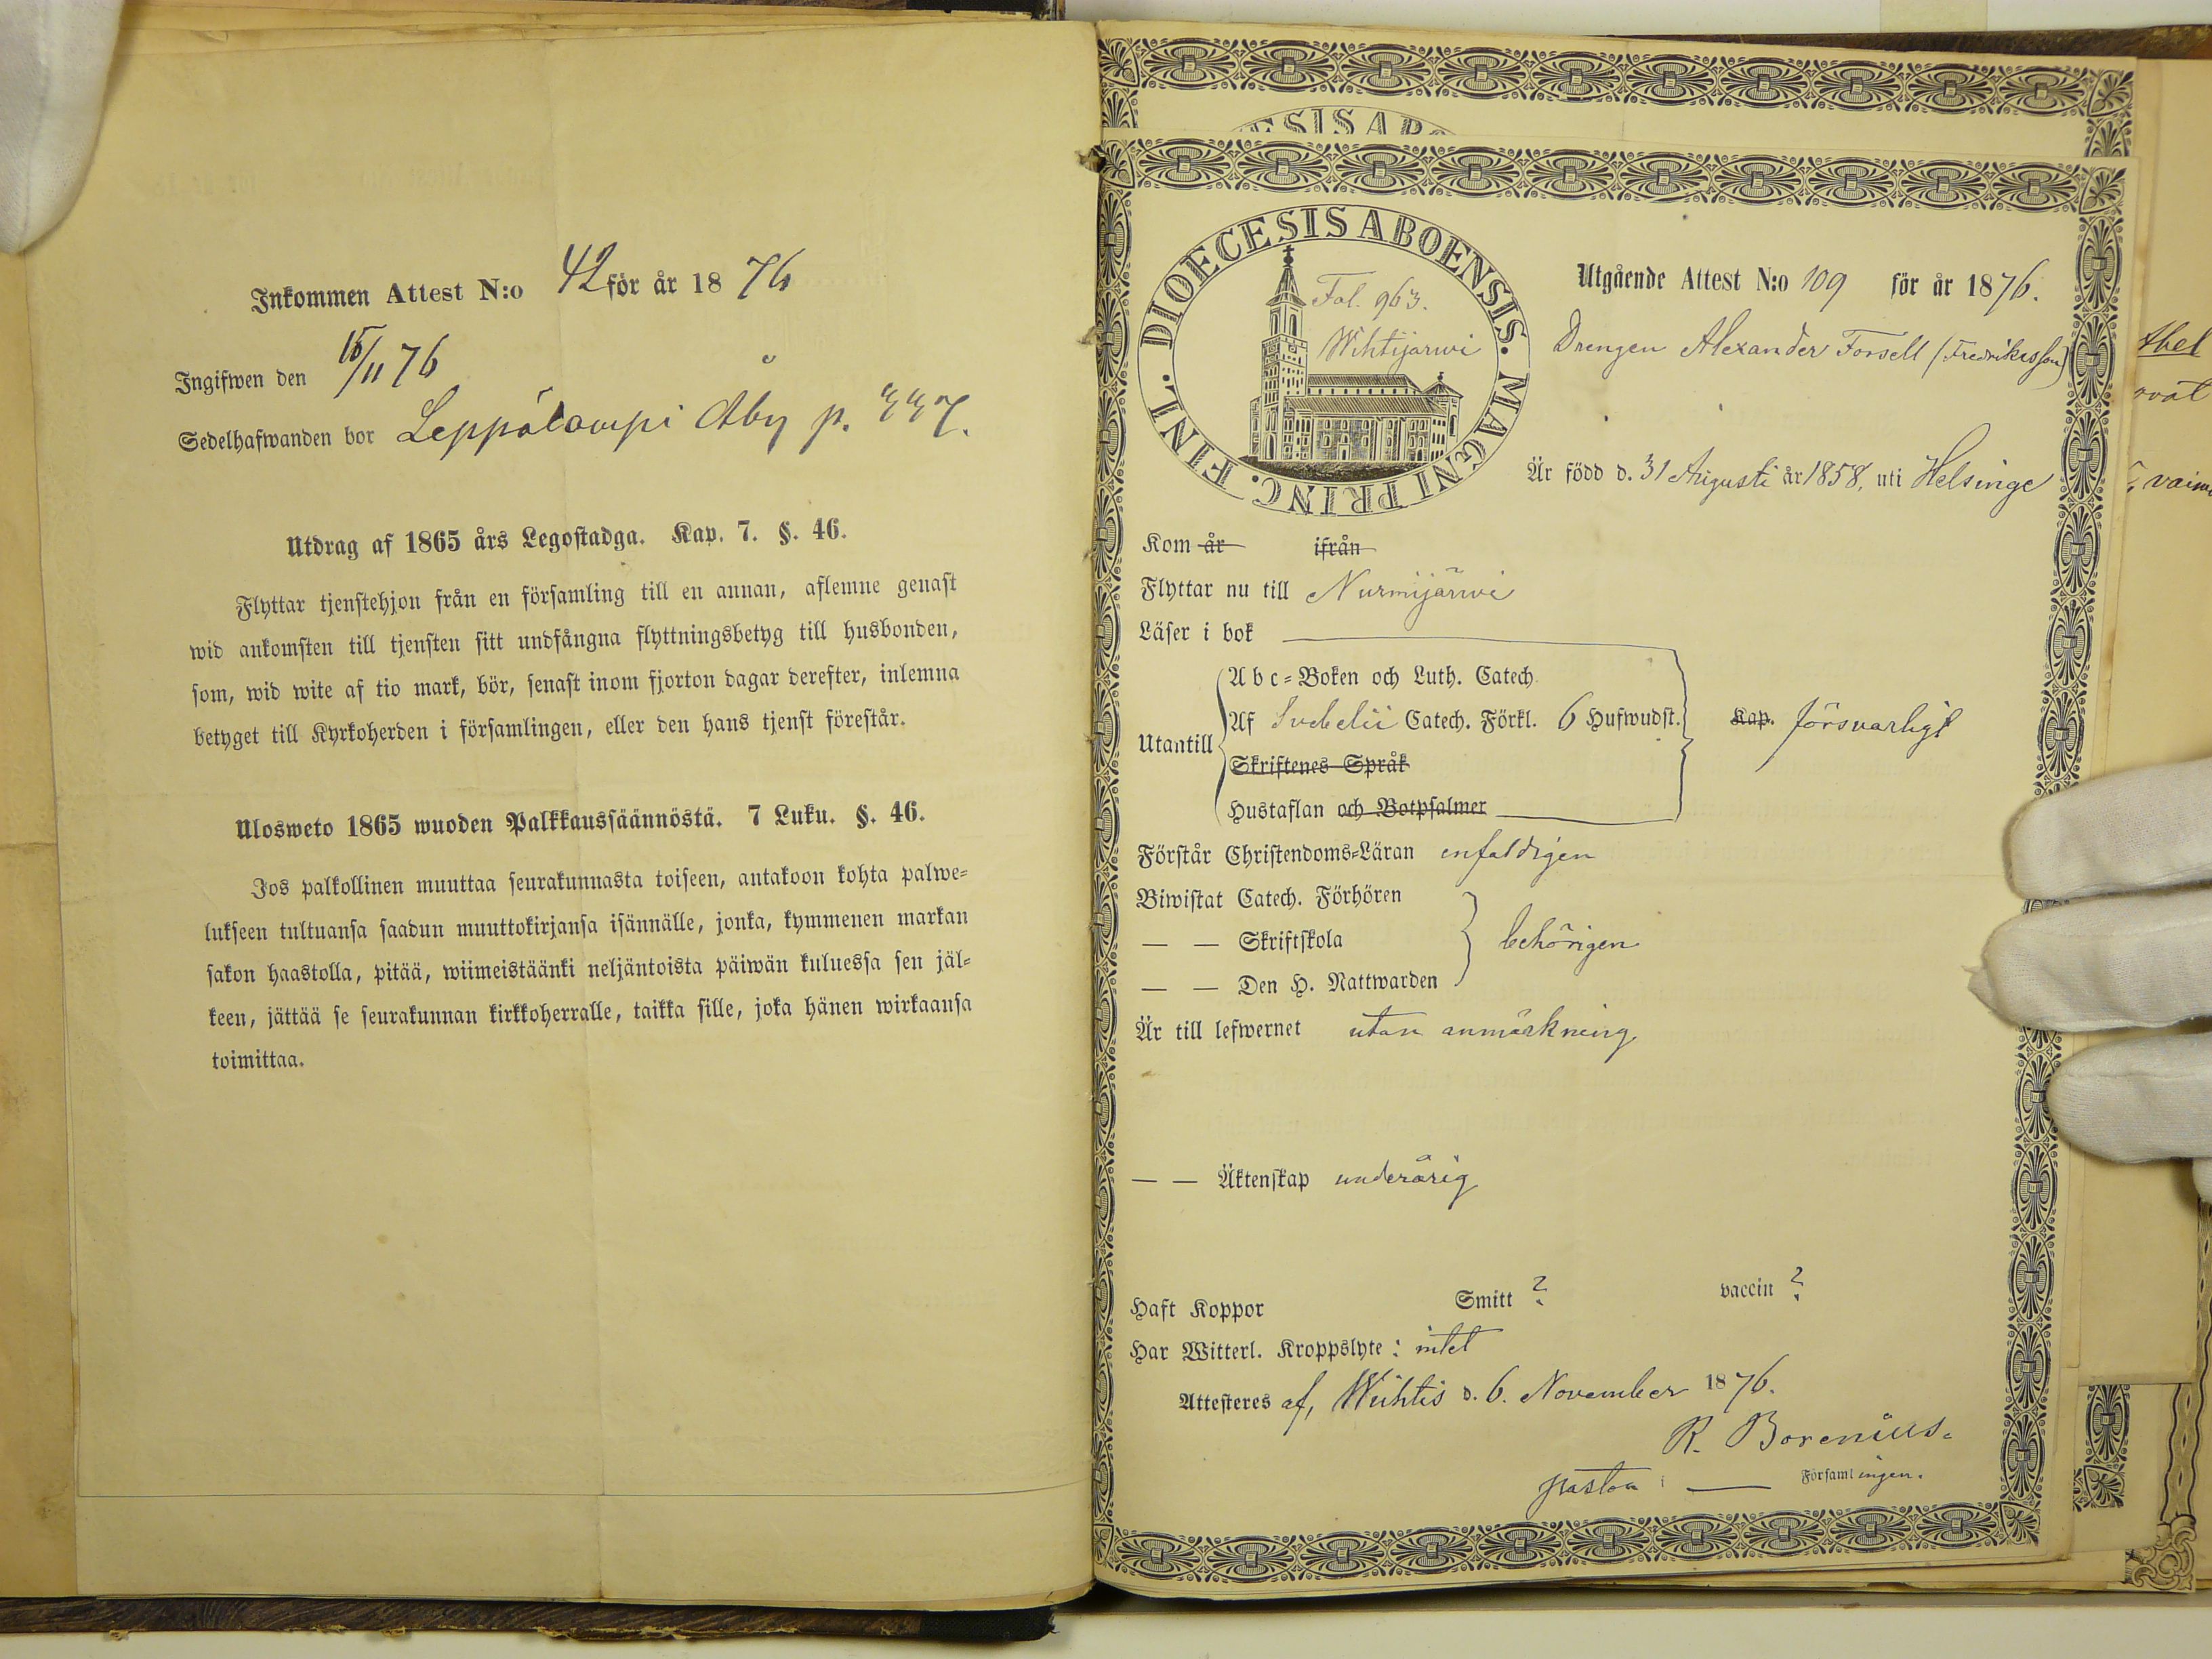 Inkommen Attest N:o 42 för år 1876
Ingifwen den 15/11 76
Sedelhafwanden bor Leppälampi Åby p. 447.
Utdrag af 1865 års Legostadga. Kap. 7. §. 46.
Flyttar tjenstehjon från en församling till en annan, aflemne genast
wid ankomsten till tjensten sitt undfångna flyttningsbetyg till husbonden,
som, wid wite af tio mark, bör, senast inom fjorton dagar derefter, inlemna
betyget till Kyrkoherden i församlingen, eller den hans tjenst förestår.
Ulosweto 1865 wuoden Palkkaussäännöstä. 7 Luku. §. 46.
Jos palkollinen muuttaa seurakunnasta toiseen, antakoon kohta palwe-
lukseen tultuansa saadun muuttokirjansa isännälle, jonka, kymmenen markan
sakon haastolla, pitää, wiimeistäänki neljäntoista päiwän kuluessa sen jäl-
keen, jättää se seurakunnan kirkkoherralle, taikka sille, joka hänen wirkaansa
toimittaa.
DIOECESIS ABOENSIS. MAGNI PRINC. FINL.
Fol. 963.
Wihtijärwi
Utgående Attest N:o 109 för år 1876.
Drengen Alexander Forsell (Fredriksson)
Är född d. 31 Augusti år 1858, uti Helsinge
Kom år ifrån
Flyttar nu till Nurmijärwi
Läser i bok
Utantill
Abc-Boken och Luth. Catech.
Af Svebelii Catech. Förkl. 6 Hufwudst.
Skriftenes Språk
Hustaflan och Botpsalmer
Kap. försvarligt
Förstår Christendoms-Läran enfaldigen
Biwistat Catech. Förhören
— — Skriftskola
— — Den H. Nattwarden
behörigen
Är till lefwernet utan anmärkning
— — Äktenskap underårig
Haft Koppor Smitt ? vaccin ?
Har Witterl. Kroppslyte: intet
Attesteres af, Wichtis d. 6. November 1876.
R. Borenius.
pastor i — Församlingen.